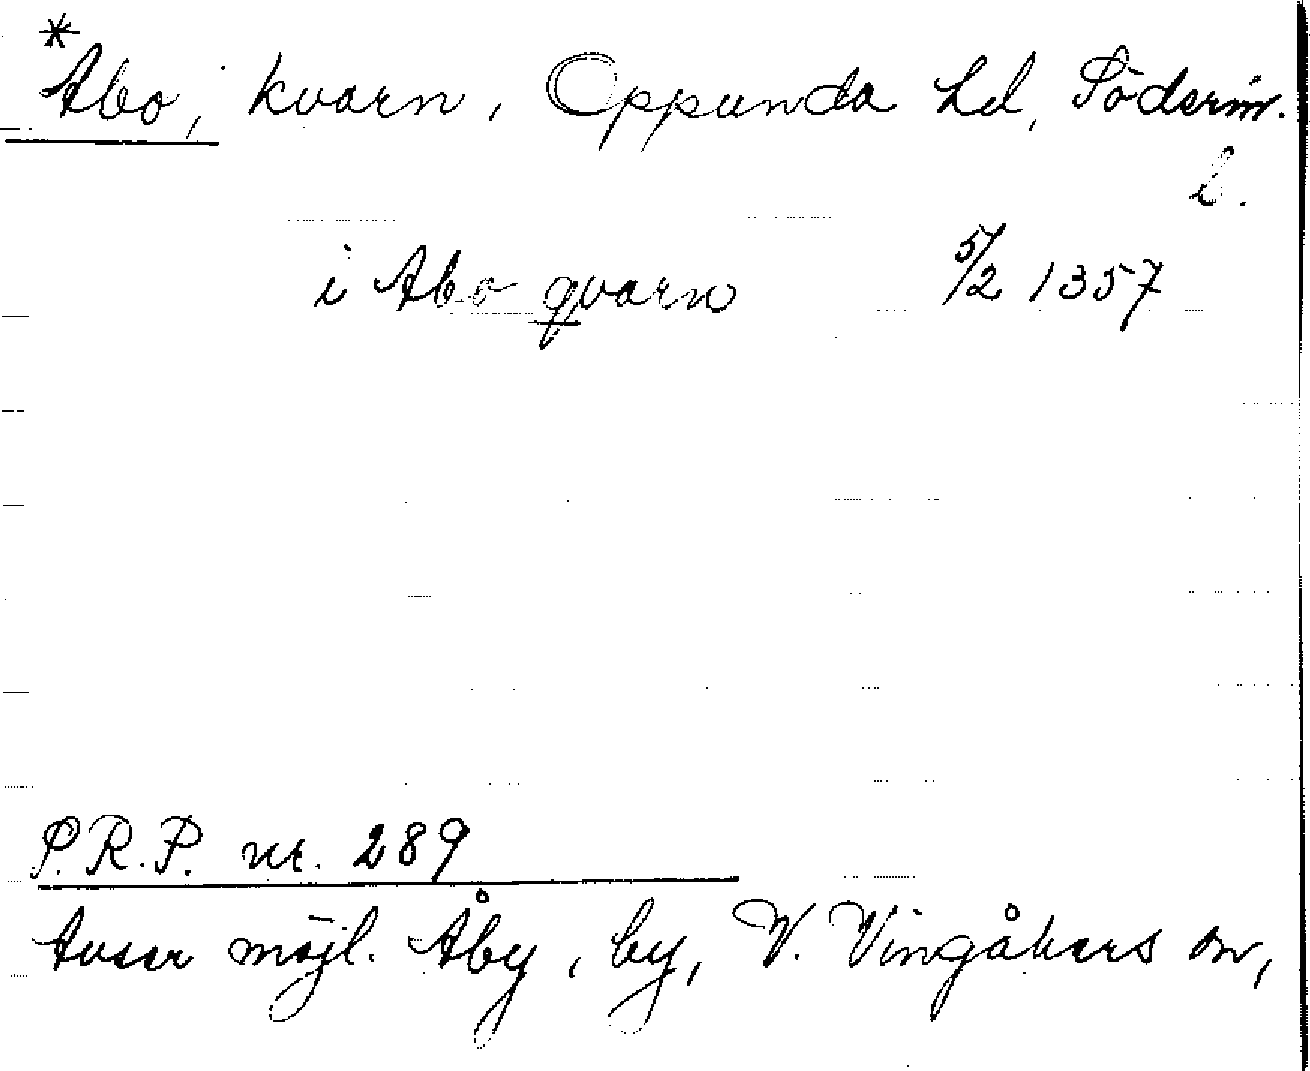 *Abo, kvarn, Oppunda hd, Söderm.
l.
i Abo qvarn 5/2 1357
P.R.P. nr. 289
Avser möjl. Åby, by, V. Vingåkers sn,